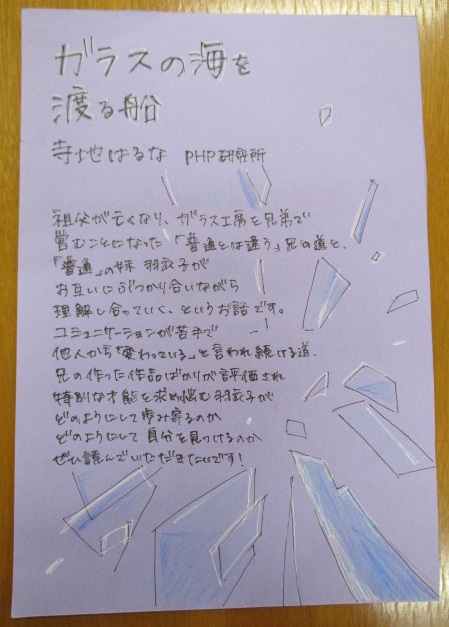 ガラスの海を
渡る船
寺地はるな PHP研究所
祖父が亡くなり、ガラス工房を兄弟で
営むことになった「普通とは違う」兄の道と、
「普通」の妹 羽衣子が
お互いにぶつかり合いながら
理解し合っていく、というお話です。
コミュニケーションが苦手で
他人から「変わっている」と言われ続ける道。
兄の作った作品ばかりが評価され
特別な才能を求め悩む羽衣子が
どのようにして歩み寄るのか
どのようにして自分を見つけるのか
ぜひ読んでいただきたいです!